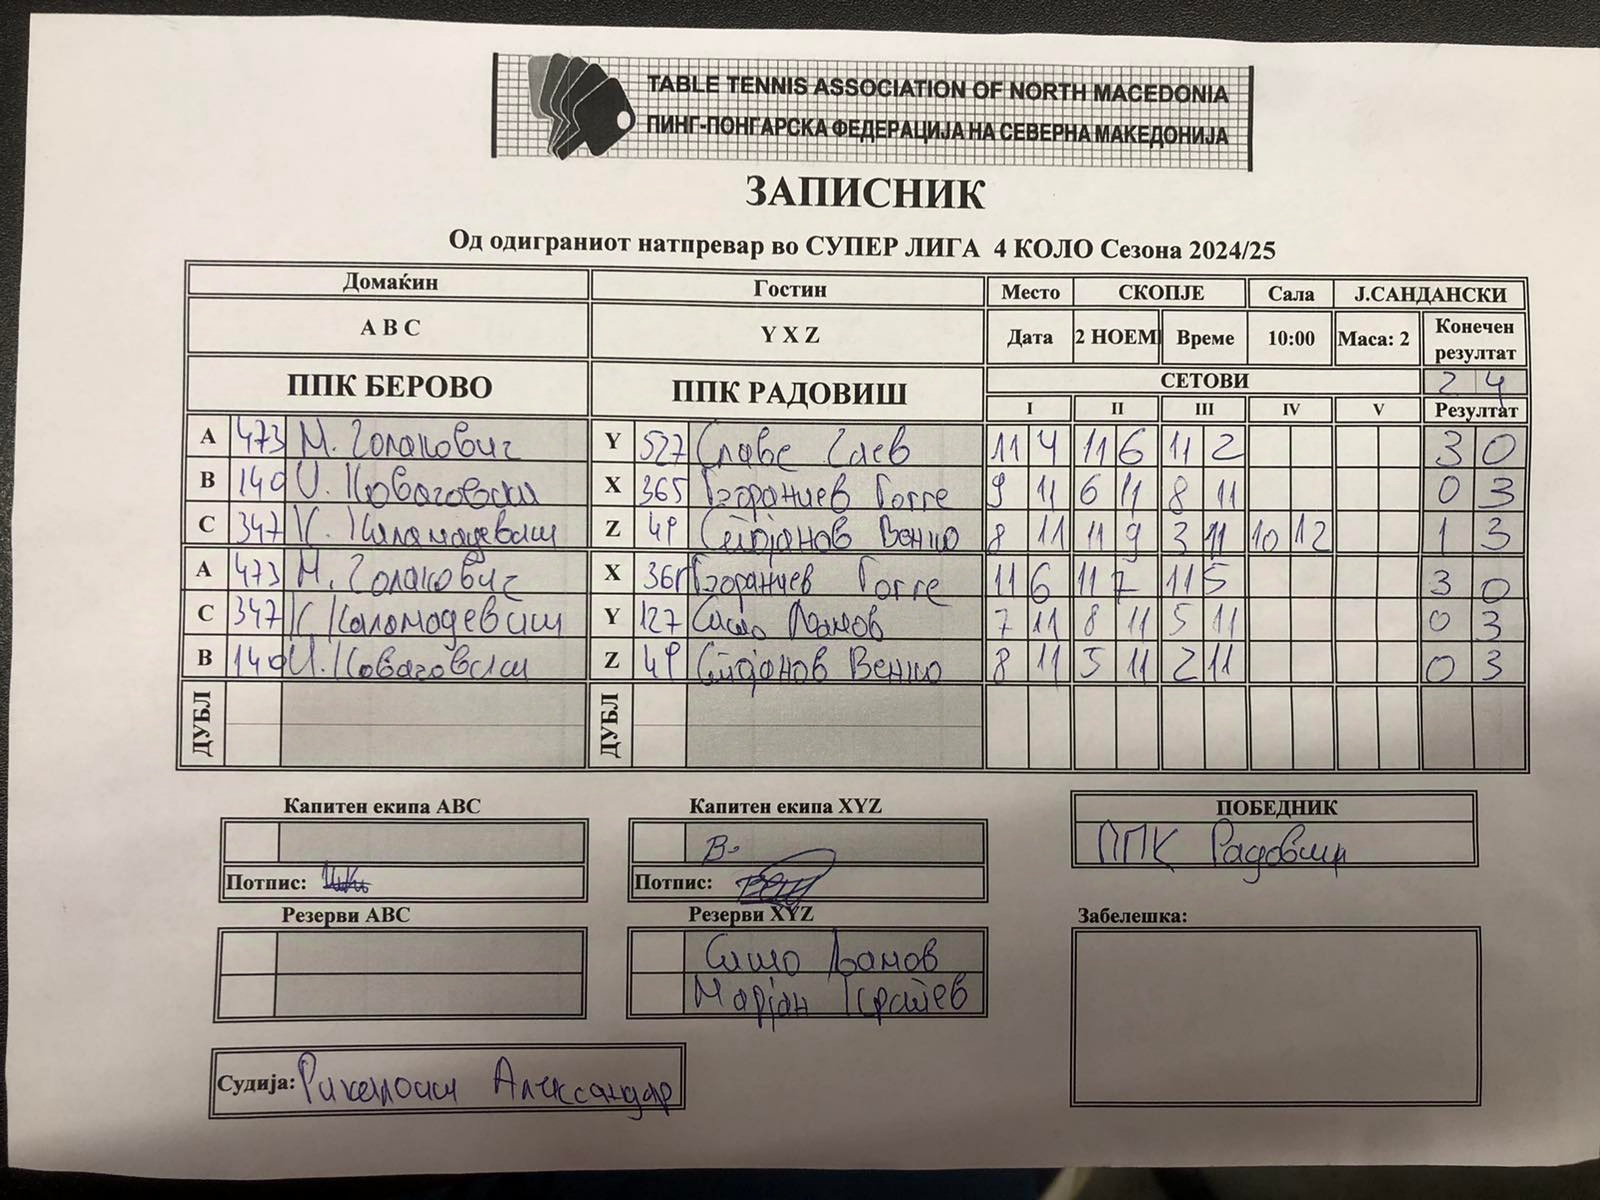 TABLE TENNIS ASSOCIATION OF NORTH MACEDONIA
ПИНГ-ПОНГАРСКА ФЕДЕРАЦИЈА НА СЕВЕРНА МАКЕДОНИЈА
ЗАПИСНИК
Од одиграниот натпревар во СУПЕР ЛИГА 4 КОЛО Сезона 2024/25
Домаќин Гостин Место СКОПЈЕ Сала Ј.САНДАНСКИ
A B C Y X Z Дата 2 НОЕМ Време 10:00 Маса: 2 Конечен резултат
ППК БЕРОВО ППК РАДОВИШ СЕТОВИ 2 4
I II III IV V Резултат
A 473 М. Голаковиќ Y 527 Славе Гаев 11 4 11 6 11 2 3 0
B 149 X 365 Ѓорѓиев Ѓорѓе 9 11 6 11 8 11 0 3
C 347 Z 49 Стојанов Венко 8 11 11 9 3 11 10 12 1 3
A 473 М. Голаковиќ X Ѓорѓе 11 6 11 7 11 5 3 0
C 347 Y 127 7 11 8 11 5 11 0 3
B 149 Z 49 Стојанов Венко 8 11 5 11 2 11 0 3
ДУБЛ ДУБЛ
Капитен екипа ABC Капитен екипа XYZ ПОБЕДНИК
В. ППК Радовиш
Потпис: Потпис:
Резерви ABC Резерви XYZ Забелешка:
Марјан
Судија: Александар